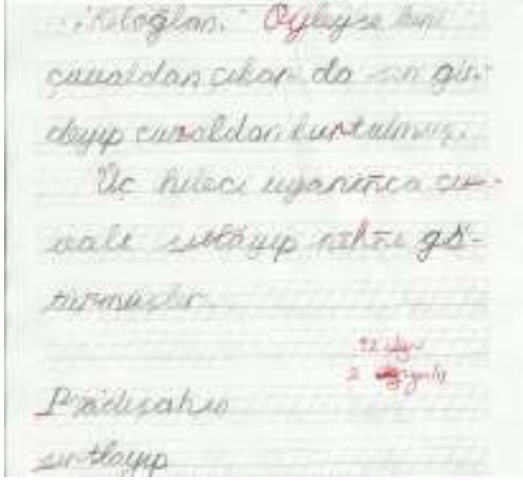 "Keloğlan." Öyleyse beni
çuvaldan çıkar da sen gir.
deyip çuvaldan kurtulmuş.
Üç hileci uyanınca çu-
vale sırtlayıp nehre gö-
türmüşler.
2
Padişahın
sırtlayıp